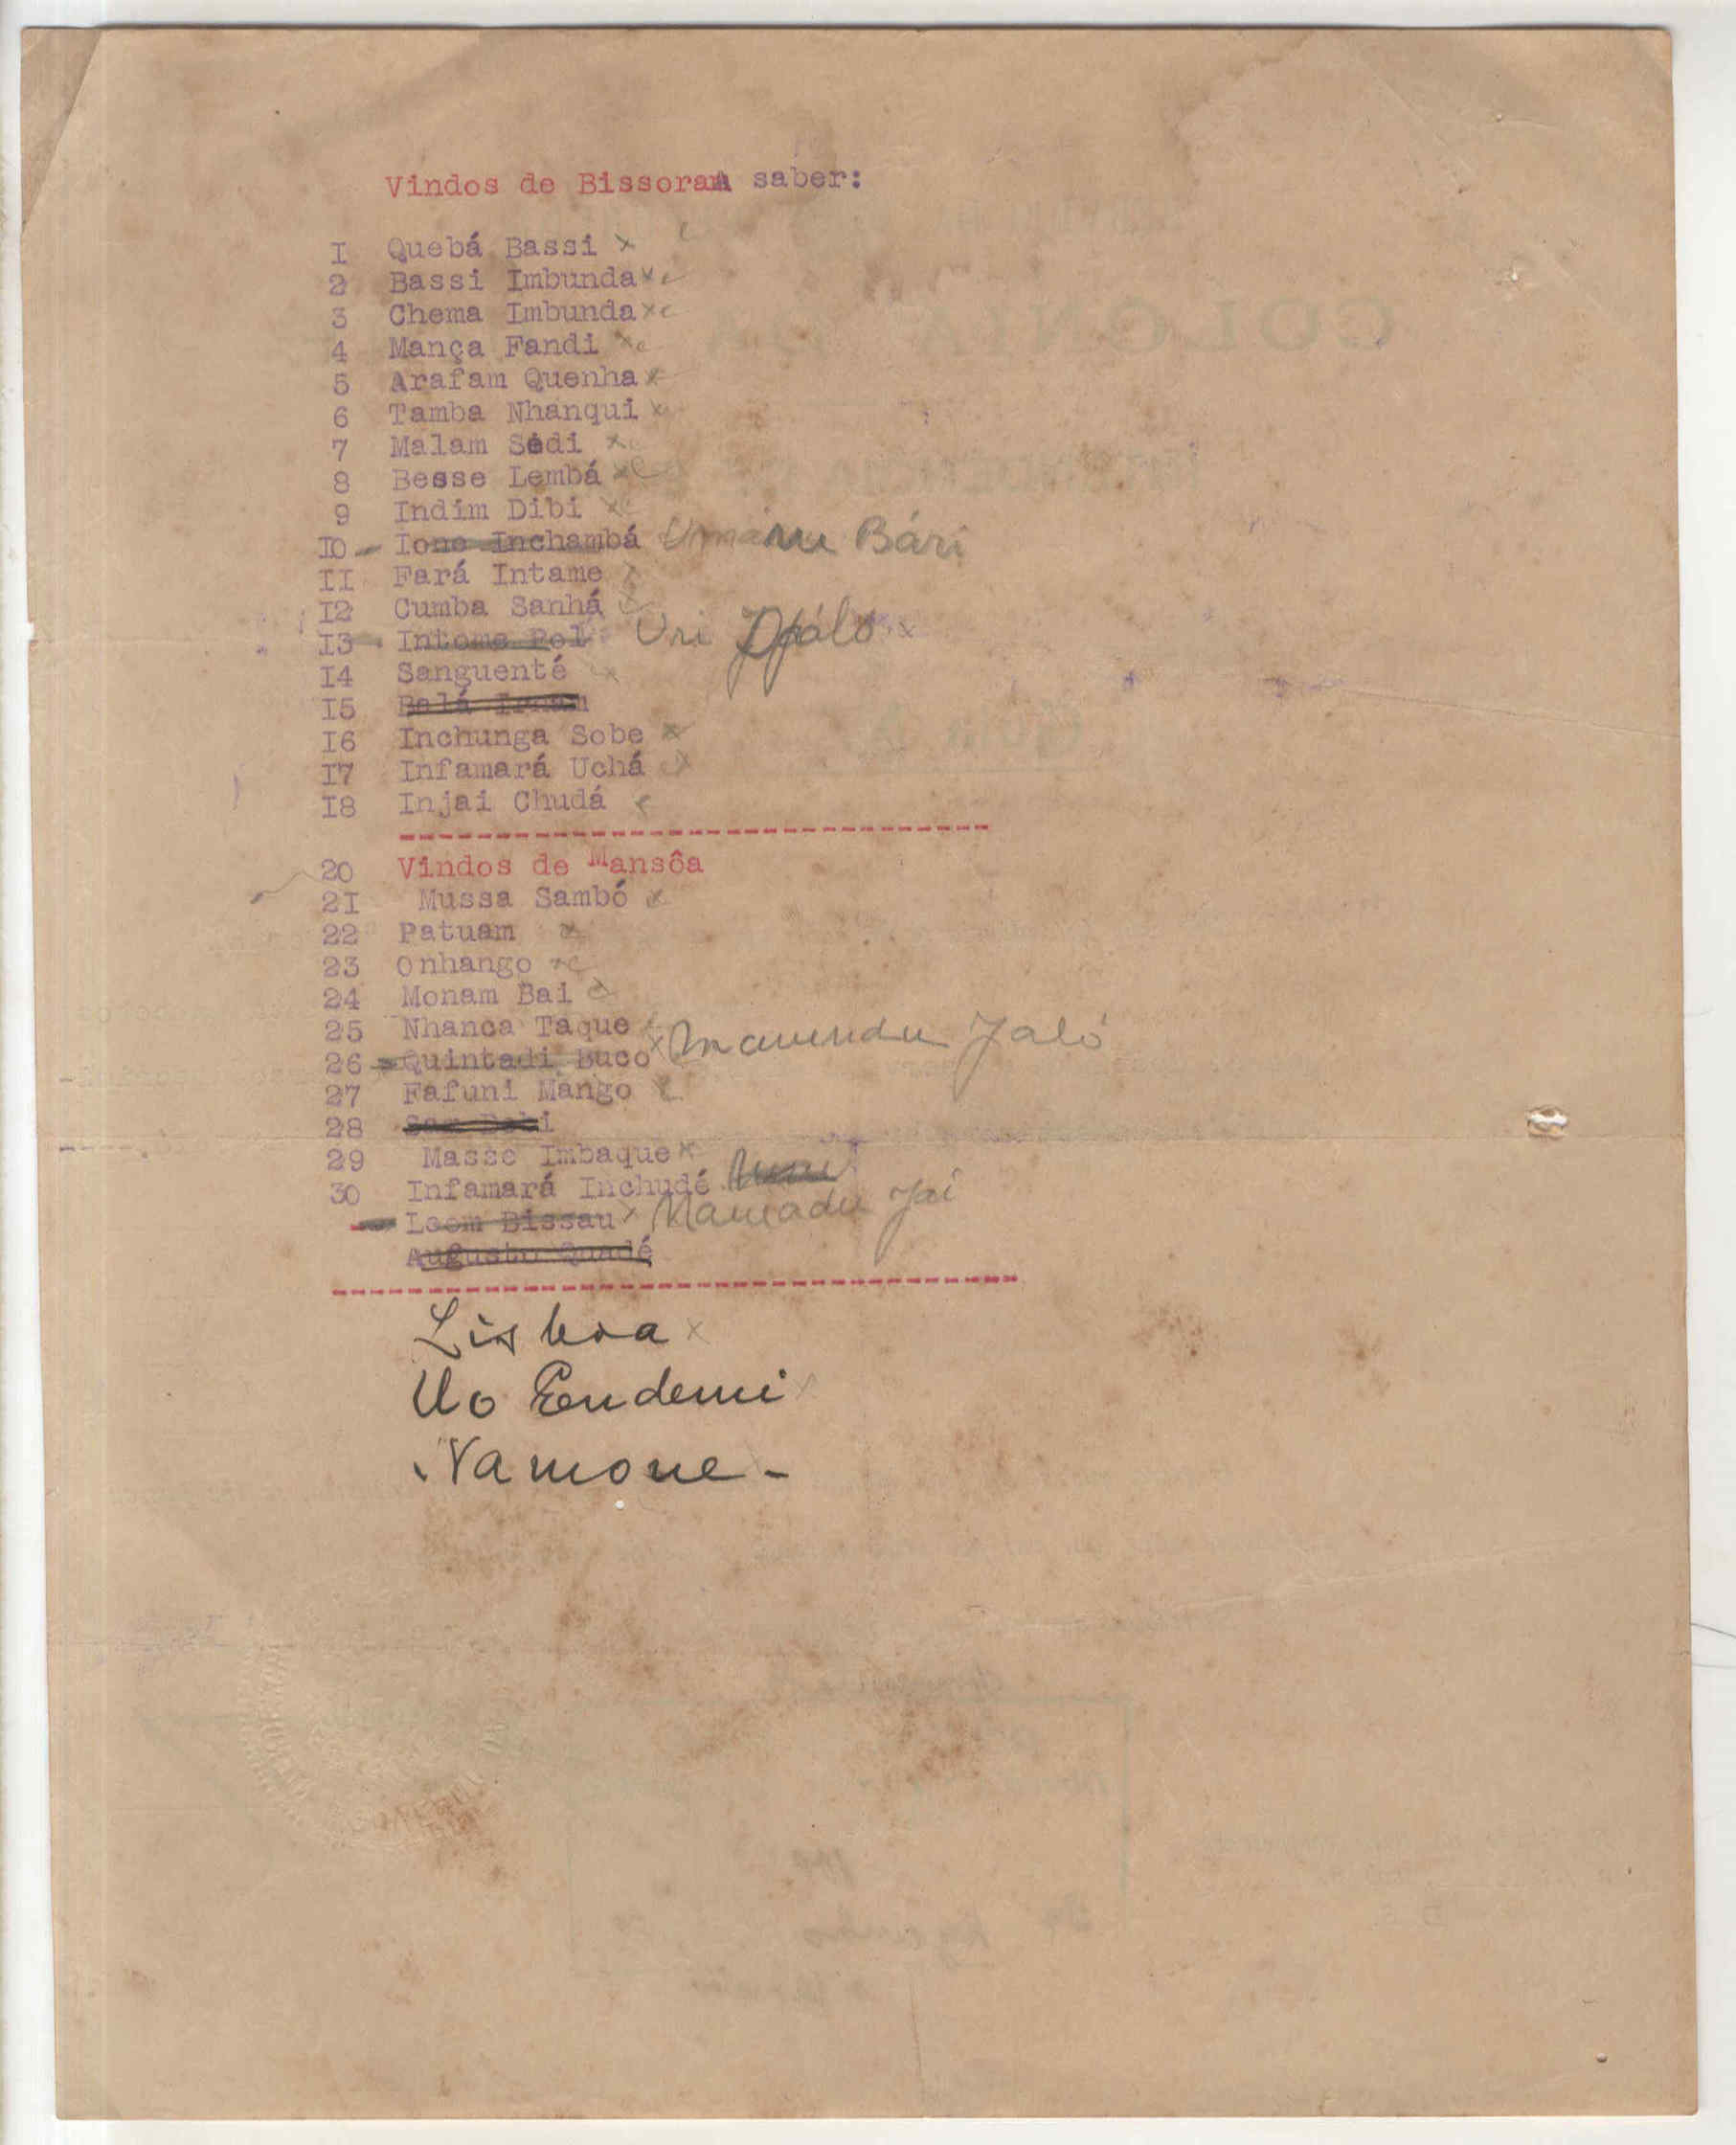 Vindos de Bissoram saber:
I Quebá Bassi x
2 Bassi Imbunda x c
3 Chema Imbunda x c
4 Mança Fandi x c
5 Arafam Quenha x
6 Tamba Nhanqui x
7 Malam Sédi x c
8 Besse Lembá x c
9 Indim Dibi x c
I0 Iono Inchambá Umaru Bári
II Fará Intame x
I2 Cumba Sanhá x
I3 Intome Pol Uri Djáló x
I4 Sanguenté x
I5 Balá
I6 Inchunga Sobe x
I7 Infamará Uchá x
I8 Injai Chudá c
20 Vindos de Mansôa
2I Mussa Sambó x
22 Patuam x
23 Onhango x c
24 Monam Bai
25 Nhanca Taque
26 Quintadi Buco x Mamudu Jaló
27 Fafuni Mango
28
29 Masse Imbaque x
30 Infamará Inchudé
Loom Bissau x Mamadu Jai
Augusto Quadé
Lisboa x
Uo Endemi x
Namone -